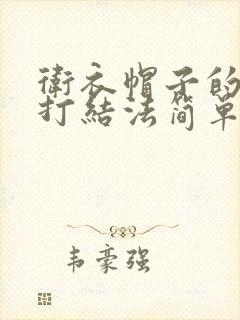 衛衣帽子的
打結法简单
韦豪强